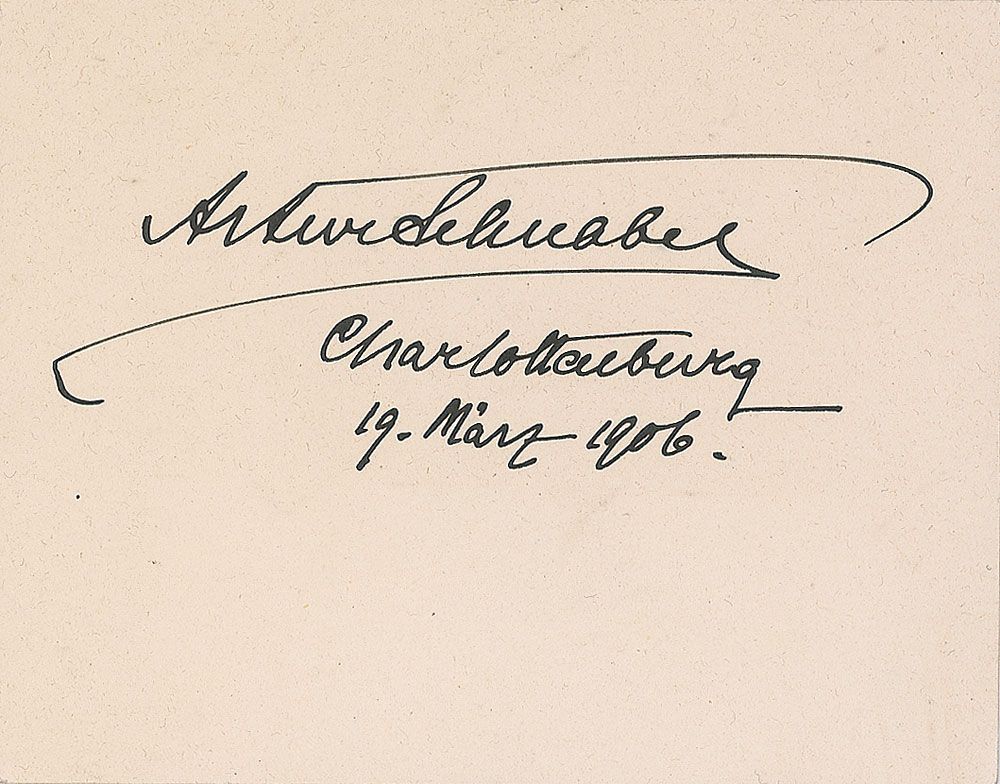 Artur Schnabel
Charlottenburg
19. März 1906.